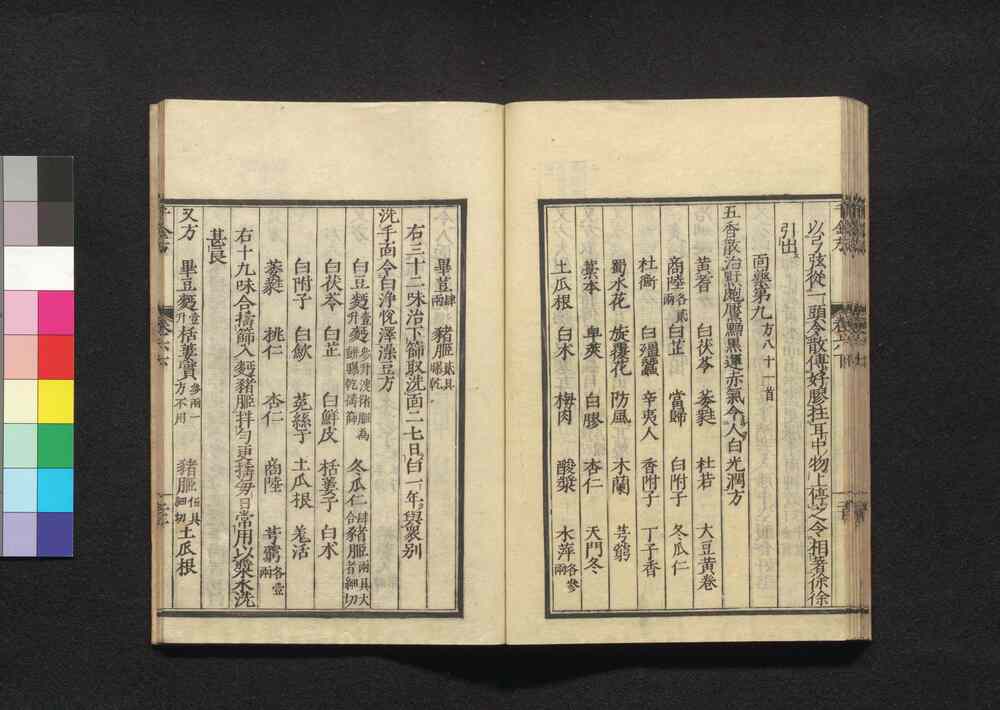 以弓弦從一頭令散傅好膠拄耳中物上停之令相著徐徐
引出
面藥第九方八十一首
五香散治䵟皰黶黯黑運赤氣令人白光潤方
黃耆 白茯苓 萎蕤 杜若 大豆黃卷
商陸各貳兩 白芷 當歸 白附子 冬瓜仁
杜衡 白殭蠶 辛夷人 香附子 丁子香
蜀水花 旋覆花 防風 木蘭 芎藭
藁本 皁莢 白膠 杏仁 天門冬
土瓜根 白术 梅肉 酸漿 水萍各參兩
畢荳肆兩 豬胵貳具曝乾
右三十二味治下篩取洗面二七日白一年與衆别
洗手面令白淨悅澤澡豆方
白豆麪壹升 冬瓜仁肆合 豬胵兩具大者細切
白茯苓 白芷 白鮮皮 栝蔞子 白术
白附子 白歛 菟絲子 土瓜根 羌活
萎蕤 桃仁 杏仁 商陸 芎藭各壹兩
右十九味合擣篩入麪豬胵拌勻更擣每日常用以漿水洗
甚良
又方 畢豆麪壹升 栝蔞實參兩一方不用 豬胵伍具細切 土瓜根